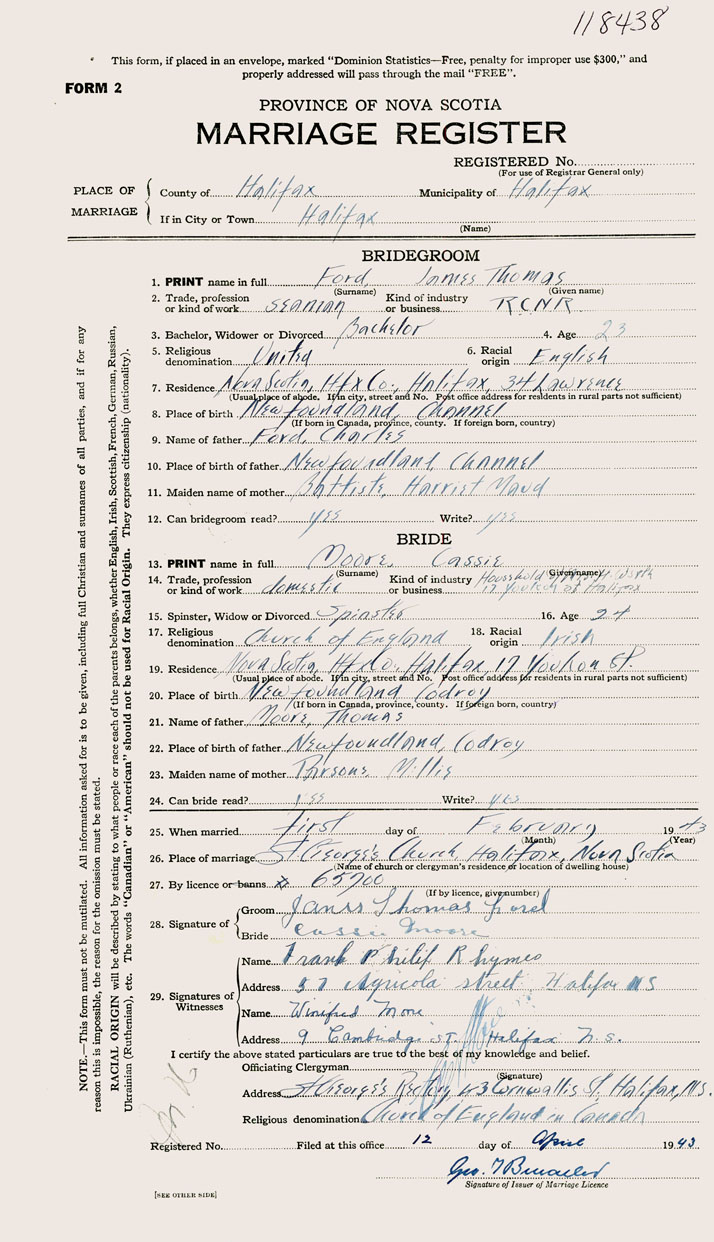 118438
This form, if placed in an envelope, marked "Dominion Statistics—Free, penalty for improper use $300," and
properly addressed will pass through the mail "FREE".
FORM 2
PROVINCE OF NOVA SCOTIA
MARRIAGE REGISTER
REGISTERED No.
(For use of Registrar General only)
PLACE OF MARRIAGE
County of Halifax Municipality of Halifax
If in City or Town Halifax
(Name)
BRIDEGROOM
1. PRINT name in full Ford, James Thomas
(Surname) (Given name)
2. Trade, profession or kind of work seaman Kind of industry or business RCNR
3. Bachelor, Widower or Divorced Bachelor 4. Age 23
5. Religious denomination United 6. Racial origin English
7. Residence Nova Scotia, Hfx Co., Halifax, 34 Lawrence
(Usual place of abode. If in city, street and No. Post office address for residents in rural parts not sufficient)
8. Place of birth Newfoundland, Channel
(If born in Canada, province, county. If foreign born, country)
9. Name of father Ford, Charles
10. Place of birth of father Newfoundland, Channel
11. Maiden name of mother Battiste, Harriet Maud
12. Can bridegroom read? yes Write? yes
BRIDE
13. PRINT name in full Moore, Cassie
(Surname) (Given name)
14. Trade, profession or kind of work domestic Kind of industry or business Household
Halifax
15. Spinster, Widow or Divorced Spinster 16. Age 24
17. Religious denomination Church of England 18. Racial origin Irish
19. Residence Nova Scotia, Hfx Co. Halifax, 17 Youkon St.
(Usual place of abode. If in city, street and No. Post office address for residents in rural parts not sufficient)
20. Place of birth Newfoundland Codroy
(If born in Canada, province, county. If foreign born, country)
21. Name of father Moore, Thomas
22. Place of birth of father Newfoundland, Codroy
23. Maiden name of mother Parsons, Millie
24. Can bride read? yes Write? yes
25. When married first day of February 1943
(Month) (Year)
26. Place of marriage St George's Church, Halifax, Nova Scotia
(Name of church or clergyman's residence or location of dwelling house)
27. By licence or banns 65700
(If by licence, give number)
28. Signature of
Groom James Thomas Ford
Bride Cassie Moore
29. Signatures of Witnesses
Name Frank Philip Rhymes
Address 57 Agricola street, Halifax NS
Name Winifred
Address 9 Cambridge St. Halifax N.S.
I certify the above stated particulars are true to the best of my knowledge and belief.
Officiating Clergyman
(Signature)
Address St George's Rectory, 43 Cornwallis St, Halifax, N.S.
Religious denomination Church of England in Canada
Registered No. Filed at this office 12 day of April 1943
Geo.
Signature of Issuer of Marriage Licence
[SEE OTHER SIDE]
NOTE.—This form must not be mutilated. All information asked for is to be given, including full Christian and surnames of all parties, and if for any
reason this is impossible, the reason for the omission must be stated.
RACIAL ORIGIN will be described by stating to what people or race each of the parents belongs, whether English, Irish, Scottish, French, German, Russian,
Ukrainian (Ruthenian), etc. The words "Canadian" or "American" should not be used for Racial Origin. They express citizenship (nationality).